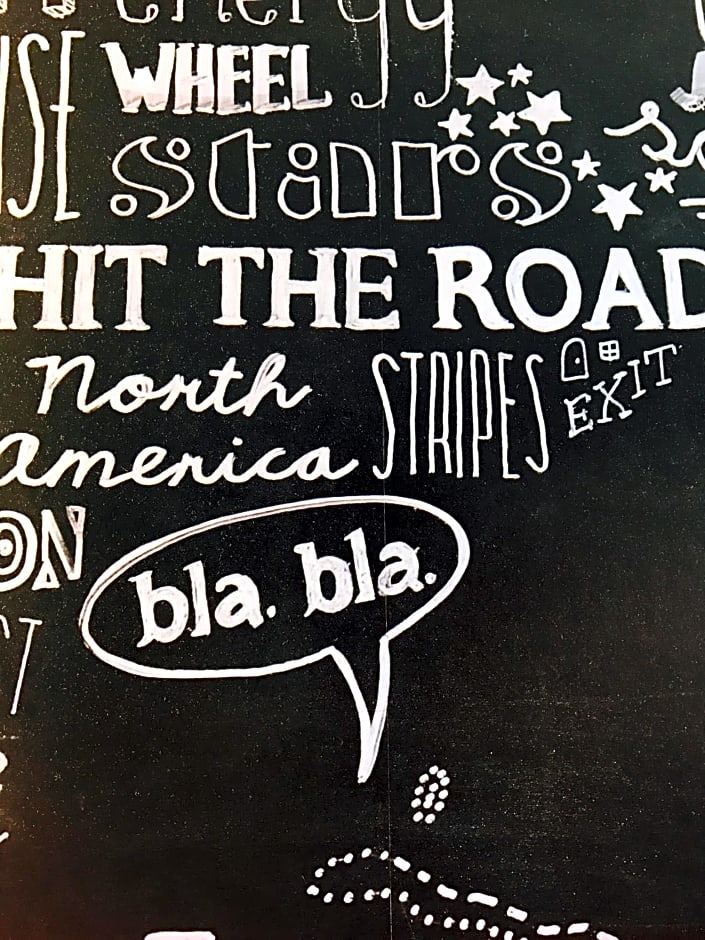 energy
WHEEL
stars
HIT THE ROAD
North
america
STRIPES
EXIT
bla. bla.